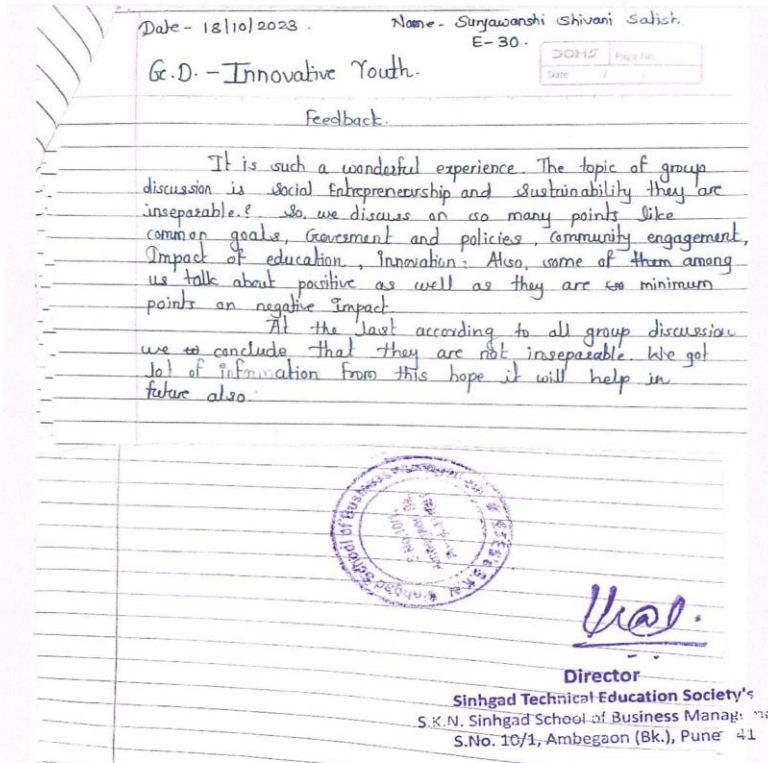 Date - 18/10/2023.
Name - Suryawanshi Shivani Satish.
E-30.
DOMS Page No.
Date / /
G.D. - Innovative Youth.
Feedback.
It is such a wonderful experience. The topic of group
discussion is Social Entrepreneurship and Sustainability they are
inseparable.?. So, we discuss on so many points like
common goals, Goverment and policies, Community engagement,
Impact of education, Innovation. Also, some of them among
us talk about positive as well as they are minimum
points on negative Impact.
At the last according to all group discussion
we to conclude that they are not inseparable. We got
lot of information from this hope it will help in
future also.
Sinhgad School of Business
S.K.N.
S.No.10/1
Director
Sinhgad Technical Education Society's
S.K.N. Sinhgad School of Business
S.No. 10/1, Ambegaon (Bk.), Pune 41